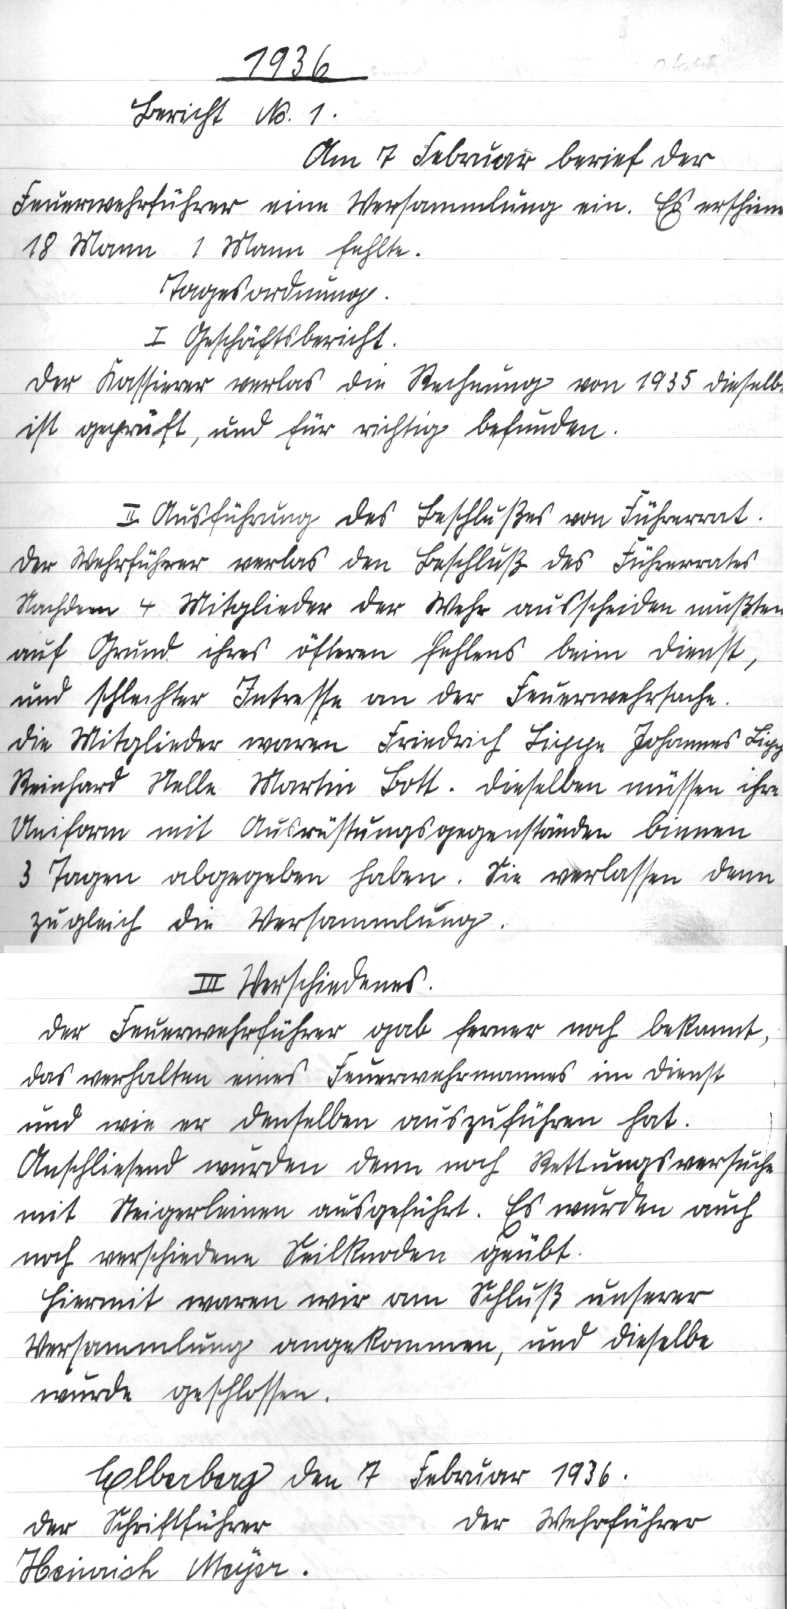 1936
Bericht No. 1.
Am 7 Februar berief der
Feuerwehrführer eine Versammlung ein. Es erschiene
18 Mann 1 Mann fehlte.
Tagesordnung.
I Geschäftsbericht.
Der Kassierer verlas die Rechnung von 1935 dieselbe
ist geprüft, und für richtig befunden.
II Ausführung des Beschlußes von Führerrat.
Der Wehrführer verlas den Beschluß des Führerrates
Nachdem 4 Mitglieder der Wehr ausscheiden mußten
auf Grund ihres öfteren fehlens beim Dienst,
und schlechter Intresse an der Feuerwehrsache.
Die Mitglieder waren Friedrich Lippe Johannes Lipp
Reinhard Nelle Martin Bott. Dieselben müssen ihre
Uniform mit Ausrüstungsgegenständen binnen
3 Tagen abgegeben haben. Sie verlassen denn
zugleich die Versammlung.
III Verschiedenes.
Der Feuerwehrführer gab ferner noch bekannt,
das verhalten eines Feuerwehrmannes im Dienst
und wie er denselben auszuführen hat.
Anschliesend wurden denn noch Rettungsversuche
mit Steigerleinen ausgeführt. Es wurden auch
noch verschiedene Seilknoden geübt.
Hiermit waren wir am Schluß unserer
Versammlung angekommen, und dieselbe
wurde geschlossen.
Elberberg den 7 Februar 1936.
Der Schriftführer Der Wehrführer
Heinrich Meyer.